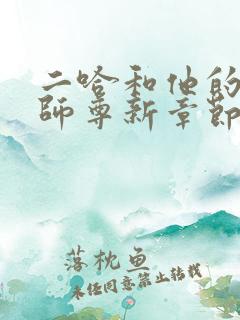 二哈和他的
師尊新章節
落枕鱼
未经同意禁止转载